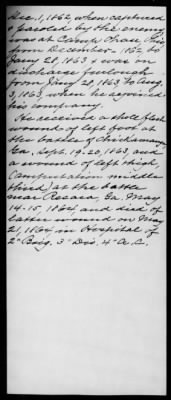 Dec. 1, 1862, when captured
& paroled by the enemy
was at Camp Chase Ohio
from December 1862 to
Jany 20, 1863 & was on
discharge furlough
from Jany 20, 1863 to Aug.
3, 1863, when he rejoined
his company.
He received a shell flesh
wound of left foot at
the battle of Chickamauga
Ga., Sept. 19-20, 1863, and
a wound of left thigh
(amputation middle
third) at the battle
near Resaca, Ga., May
14-15, 1864, and died of
latter wound on May
21, 1864, in Hospital of
2" Brig. 3" Div. 4" A.C.